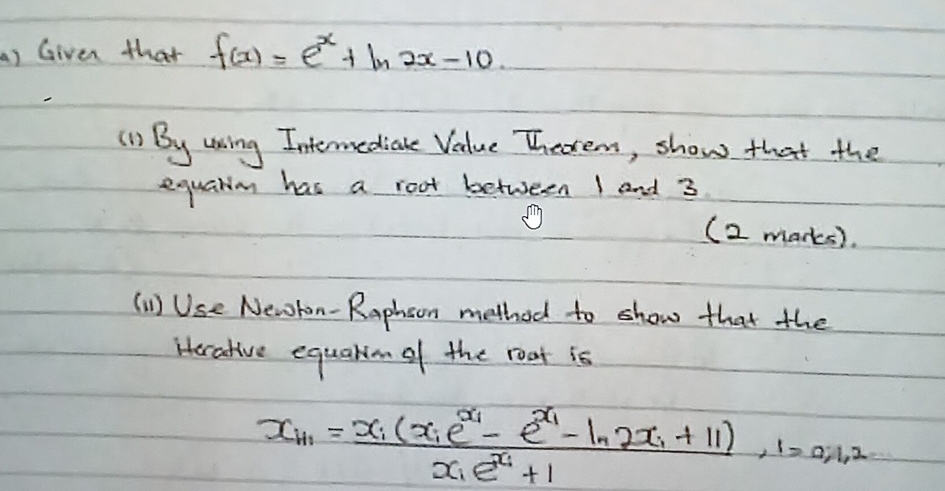 a) Given that f(x) = e^x + ln 2x - 10.
(i) By using Intermediate Value Theorem, show that the
equation has a root between 1 and 3.
(2 marks).
(ii) Use Newton-Raphson method to show that the
iterative equation of the root is
x_{i+1} = x_i (x_i e^{x_i} - e^{x_i} - ln 2x_i + 11) / (x_i e^{x_i} + 1), i = 0,1,2...